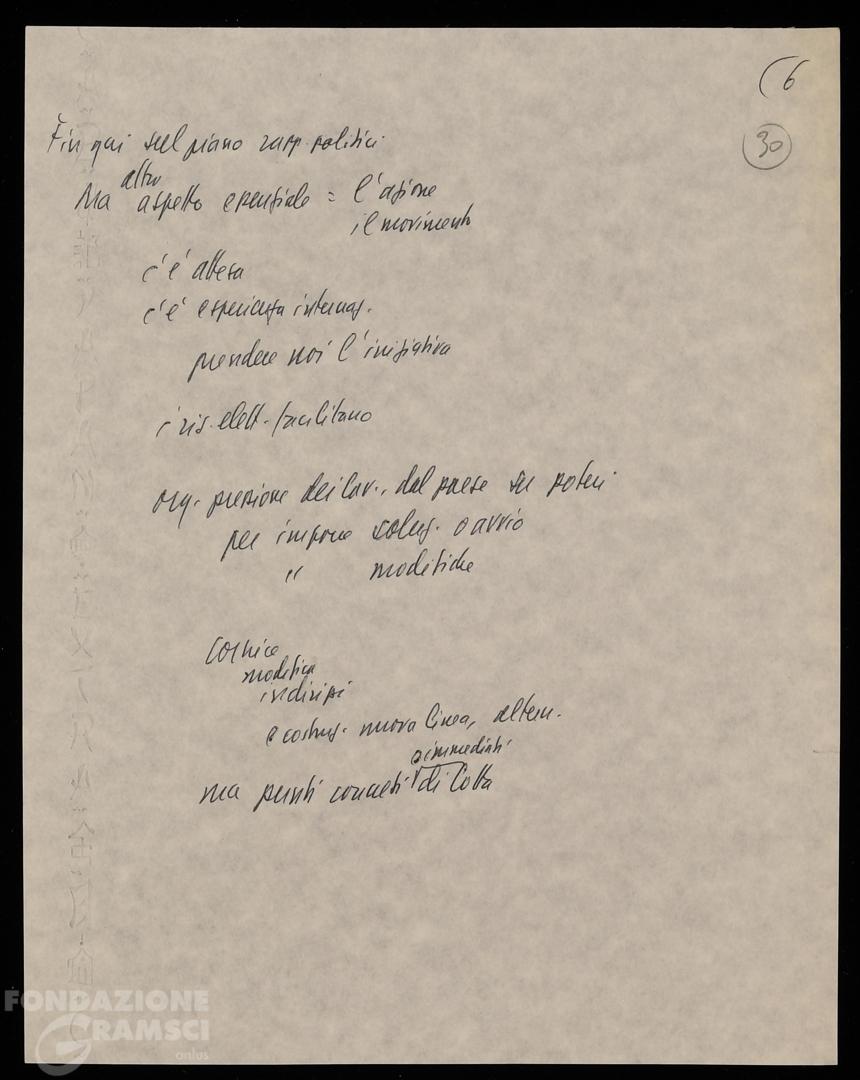 (6
30
Fin qui sul piano rapp. politici
altro
Ma aspetto essenziale = l'azione
il movimento
c'è attesa
c'è esperienza internaz.
prendere noi l'iniziativa
i ris. elett. facilitano
org. pressione dei lav., dal paese su poteri
per imporre soluz. o avvio
" modifiche
Cornice
modifica
indirizzi
e costruz. nuova linea, altern.
e immediati
ma punti concreti di lotta
FONDAZIONE
GRAMSCI
onlus